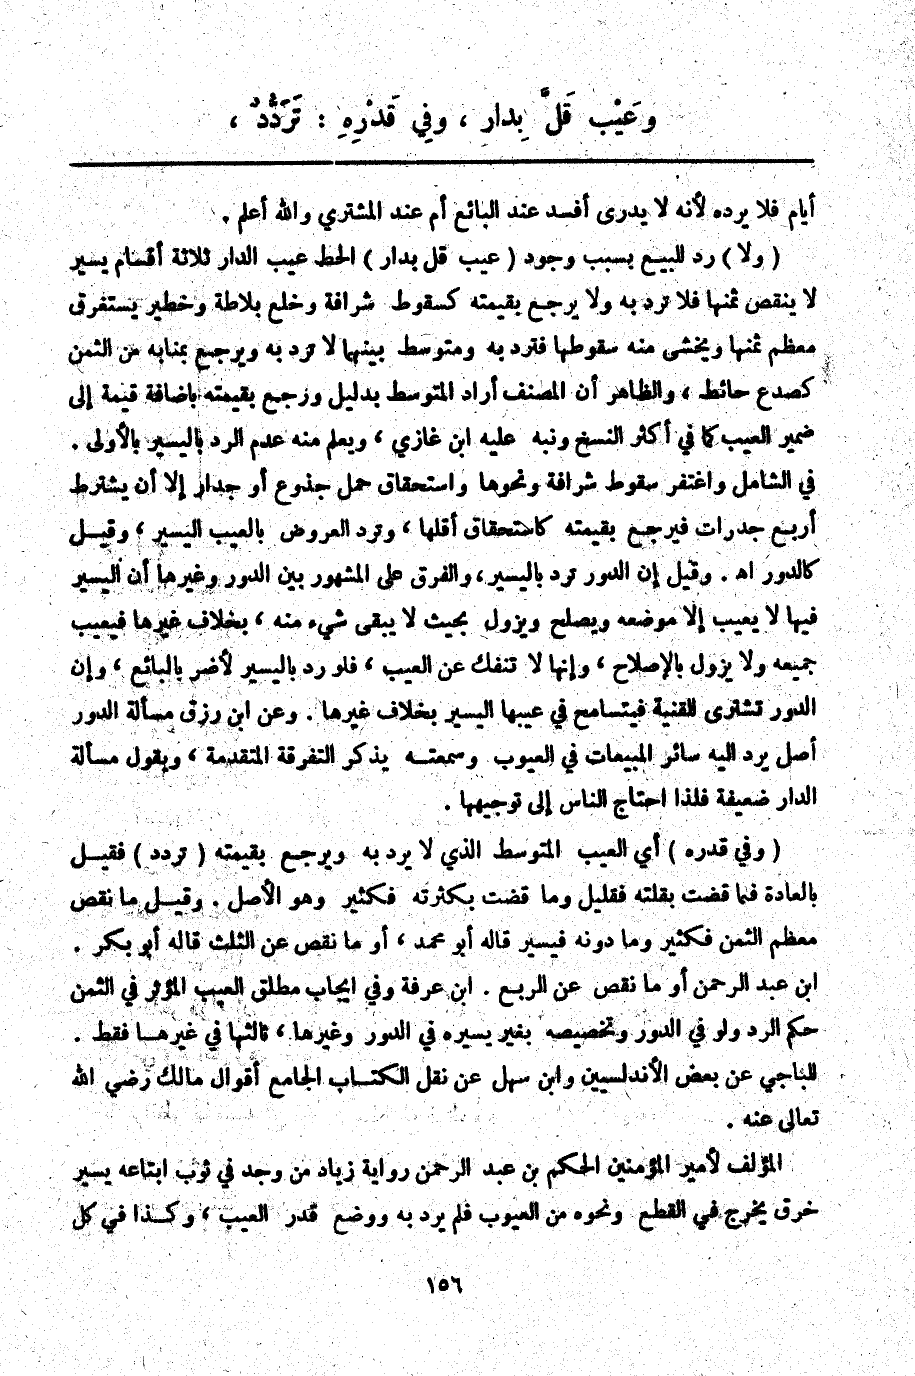 وَعَيْب قَلَّ بِدار ، وفِي قَدْرِهِ : تَرَدُّدٌ ،
أيام فلا يرده لأنه لا يدرى أفسد عند البائع أم عند المشتري والله أعلم .
( ولا ) رد للبيع بسبب وجود ( عيب قل بدار ) الحط عيب الدار ثلاثة أقسام يسير
لا ينقص ثمنها فلا ترد به ولا يرجع بقيمته كسقوط شرافة وخلع بلاطة وخطير يستغرق
معظم ثمنها ويخشى منه سقوطها فترد به ومتوسط بينهما لا ترد به ويرجع بمنابه من الثمن
كصدع حائط ، والظاهر أن المصنف أراد المتوسط بدليل ورجع بقيمته باضافة قيمة إلى
ضمير العيب كما في أكثر النسخ ونبه عليه ابن غازي ، ويعلم منه عدم الرد باليسير بالأولى .
في الشامل واغتفر سقوط شرافة ونحوها واستحقاق حمل جذوع أو جدار إلا أن يشترط
أربع جدرات فيرجع بقيمته كاستحقاق أقلها ، وترد العروض بالعيب اليسير ، وقيــل
كالدور اه . وقيل إن الدور ترد باليسير ، والفرق على المشهور بين الدور وغيرها أن اليسير
فيها لا يعيب إلا موضعه ويصلح ويزول بحيث لا يبقى شيء منه ، بخلاف غيرها فيعيب
جميعه ولا يزول بالإصلاح ، وإنها لا تنفك عن العيب ، فلو رد باليسير لأضر بالبائع ، وإن
الدور تشترى للقنية فيتسامح في عيبها اليسير بخلاف غيرها . وعن ابن رزق مسألة الدور
أصل يرد اليه سائر المبيعات في العيوب وسمعتــه يذكر التفرقة المتقدمة ، ويقول مسألة
الدار ضعيفة فلذا احتاج الناس إلى توجيهها .
( وفي قدره ) أي العيب المتوسط الذي لا يرد به ويرجع بقيمته ( تردد ) فقيــل
بالعادة فما قضت بقلته فقليل وما قضت بكثرته فكثير وهو الأصل . وقيــل ما نقص
معظم الثمن فكثير وما دونه فيسير قاله أبو محمد ، أو ما نقص عن الثلث قاله أبو بكر .
ابن عبد الرحمن أو ما نقص عن الربع . ابن عرفة وفي ايجاب مطلق العيب المؤثر في الثمن
حكم الرد ولو في الدور وتخصيصه بغير يسيره في الدور وغيرها ، ثالثها في غيرهــا فقط .
للباجي عن بعض الأندلسيين وابن سهل عن نقل الكتــاب الجامع أقوال مالك رضي الله
تعالى عنه .
المؤلف لأمير المؤمنين الحكم بن عبد الرحمن رواية زياد من وجد في ثوب ابتاعه يسير
خرق يخرج في القطع ونحوه من العيوب فلم يرد به ووضع قدر العيب ، وكــذا في كل
١٥٦